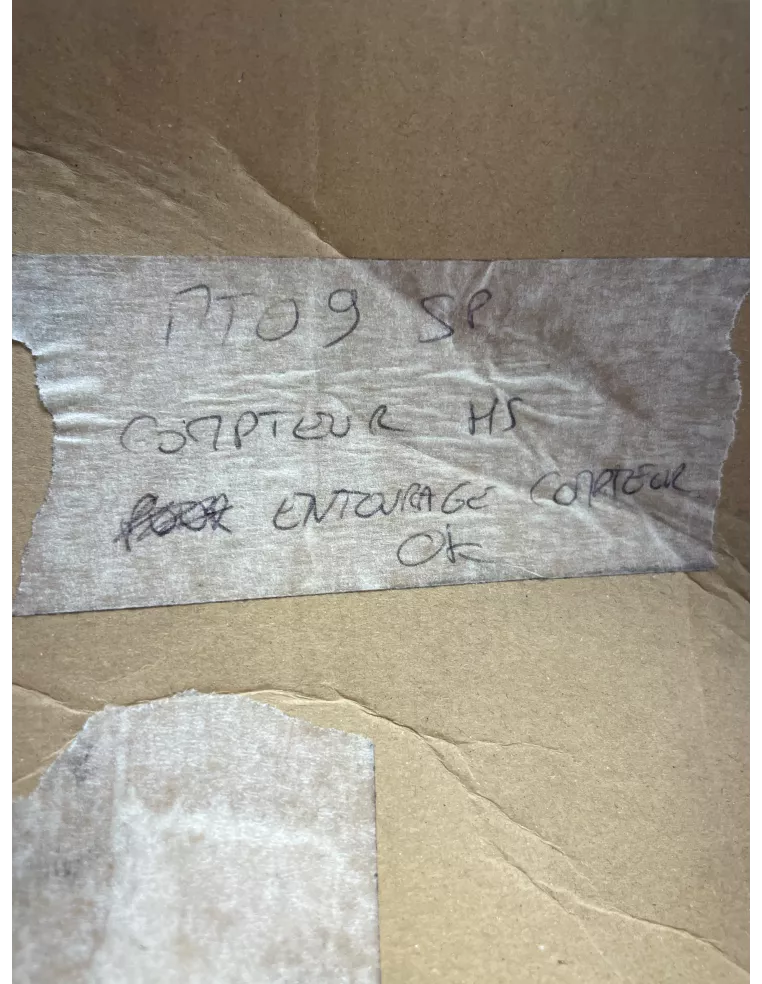 MT09 SP
COMPTEUR HS
ENTOURAGE COMPTEUR
OK